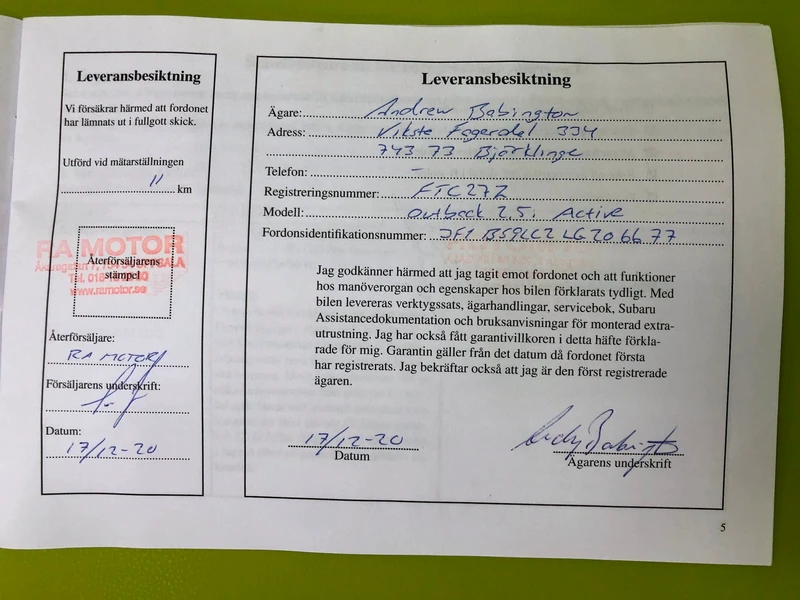 Leveransbesiktning
Vi försäkrar härmed att fordonet
har lämnats ut i fullgott skick.
Utförd vid mätarställningen
11 km
RA MOTOR
Återförsäljarens
stämpel
www.ramotor.se
Återförsäljare:
RA MOTOR
Försäljarens underskrift:
Datum:
17/12-20
Leveransbesiktning
Ägare: Andrew Babington
Adress: Vikste Fagerdal 334
743 73 Björklinge
Telefon: -
Registreringsnummer: FTC27Z
Modell: Outback 2.5i Active
Fordonsidentifikationsnummer: JF1BS9LC2LG206677
Jag godkänner härmed att jag tagit emot fordonet och att funktioner
hos manöverorgan och egenskaper hos bilen förklarats tydligt. Med
bilen levereras verktygssats, ägarhandlingar, servicebok, Subaru
Assistancedokumentation och bruksanvisningar för monterad extra-
utrustning. Jag har också fått garantivillkoren i detta häfte förkla-
rade för mig. Garantin gäller från det datum då fordonet första
har registrerats. Jag bekräftar också att jag är den först registrerade
ägaren.
17/12-20
Datum
Ägarens underskrift
5